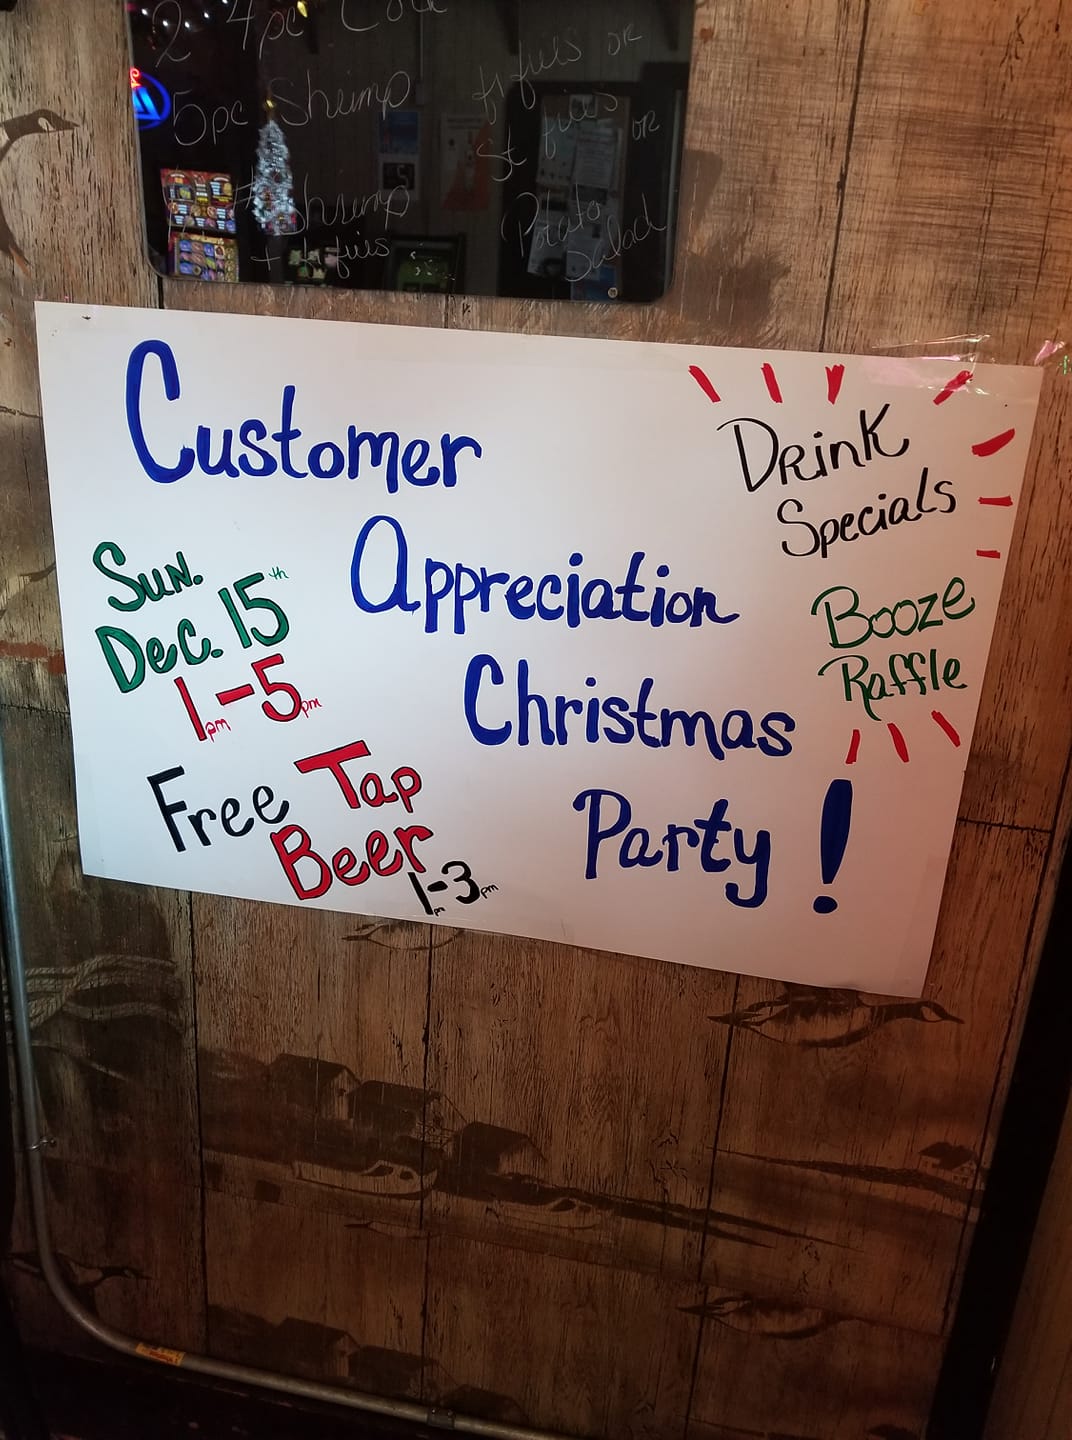 2 4pc Cod
5pc Shrimp
fr fries or
St fries or
Shrimp
+ fr fries
Potato
Salad
Customer
Appreciation
Christmas
Party!
Sun.
Dec. 15th
1pm-5pm
Free Tap
Beer
1pm-3pm
Drink
Specials
Booze
Raffle